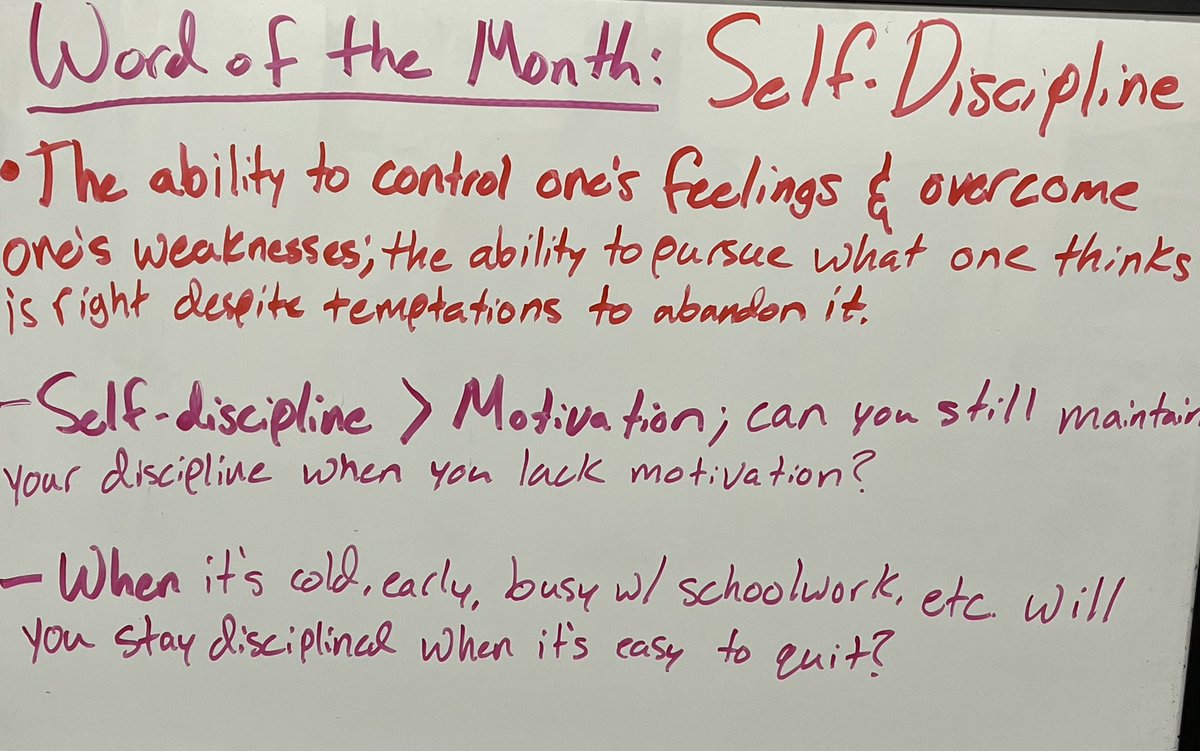 Word of the Month: Self-Discipline
• The ability to control one's feelings & overcome
one's weaknesses; the ability to pursue what one thinks
is right despite temptations to abandon it.
- Self-discipline > Motivation; can you still maintain
your discipline when you lack motivation?
- When it's cold, early, busy w/ schoolwork, etc. will
you stay disciplined when it's easy to quit?